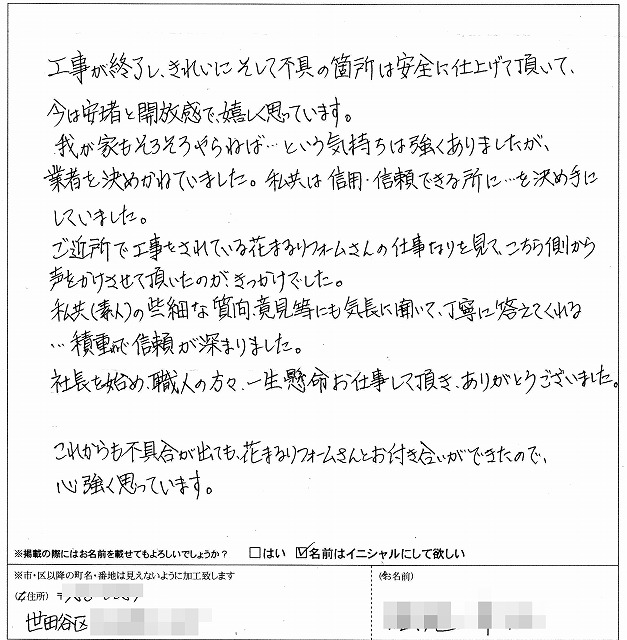 工事が終了し、きれいにそして不具の箇所は安全に仕上げて頂いて、
今は安堵と開放感で、嬉しく思っています。
我が家もそろそろやらねば…という気持ちは強くありましたが、
業者を決めかねていました。私共は信用・信頼できる所に…を決め手に
していました。
ご近所で工事をされている花まるリフォームさんの仕事なりを見て、こちら側から
声をかけさせて頂いたのがきっかけでした。
私共(素人)の些細な質問、意見等にも気長に聞いて、丁寧に答えてくれる
…積重ねで信頼が深まりました。
社長を始め、職人の方々、一生懸命お仕事して頂き、ありがとうございました。
これからも不具合が出ても、花まるリフォームさんとお付き合いができたので、
心強く思っています。
※掲載の際にはお名前を載せてもよろしいでしょうか? □はい ☑名前はイニシャルにして欲しい
※市・区以降の町名・番地は見えないように加工致します
(ご住所) 〒
世田谷区
(お名前)